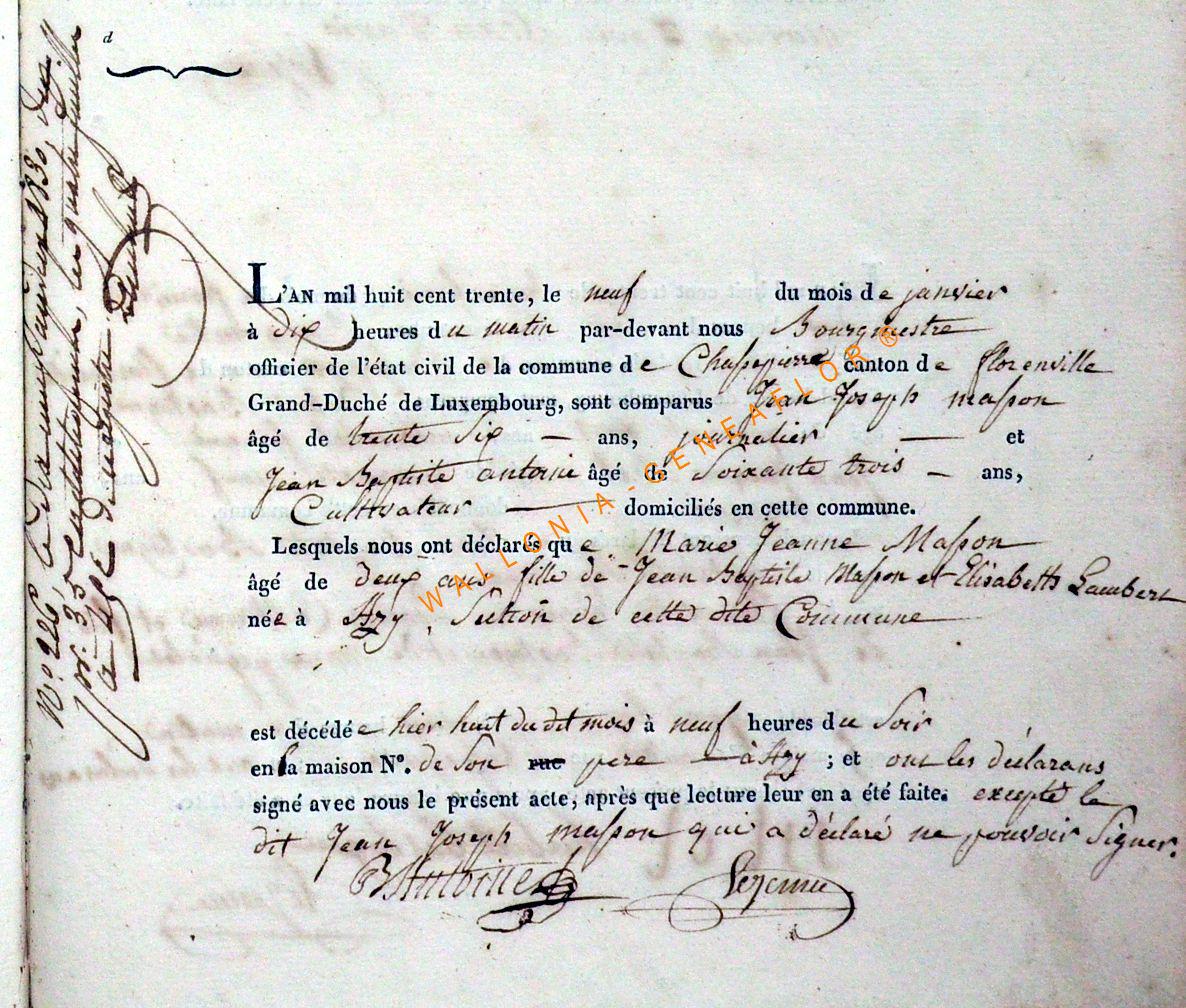 d
L'AN mil huit cent trente, le neuf du mois de janvier
à dix heures du matin par-devant nous Bourgmestre
officier de l'état civil de la commune de Chassepierre canton de florenville
Grand-Duché de Luxembourg, sont comparus Jean Joseph masson
âgé de trente six — ans, journalier — et
Jean Baptiste antoine âgé de Soixante trois — ans,
Cultivateur — domiciliés en cette commune.
Lesquels nous ont déclarés que Marie Jeanne Masson
âgé de deux ans fille de Jean Baptiste Masson et Elisabeth Lambert
née à Azy, Section de cette dite Commune
est décédée hier huit du dit mois à neuf heures du Soir
en la maison N°. de Son rue pere — à Azy ; et ont les déclarans
signé avec nous le présent acte, après que lecture leur en a été faite. excepté le
dit Jean Joseph masson qui a déclaré ne pouvoir Signer.
B Antoine
N.° 226, le dix neuf 1830, du
pr. 35 les quatre feuilles
de registre
WALLONIA-GENEAFLOR®